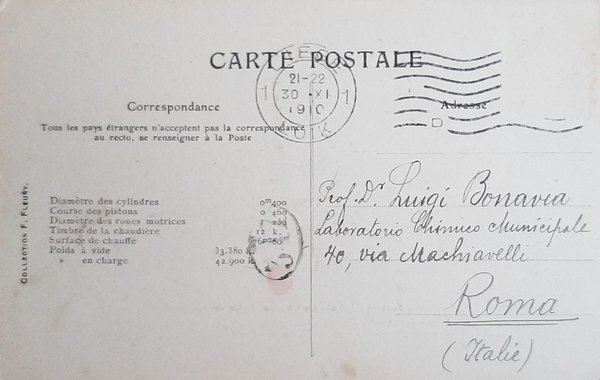 CARTE POSTALE
LIEGE
21-22
1 30 · XI 1
1910
LUIK
Correspondance
Adresse
Tous les pays étrangers n'acceptent pas la correspondance
au recto, se renseigner à la Poste
COLLECTION F. FLEURY.
Diamètre des cylindres 0m400
Course des pistons 0 460
Diamètre des roues motrices 1 230
Timbre de la chaudière 12 k.
Surface de chauffe
Poids à vide 33.380 k.
» en charge 42.900 k.
Prof. Dr. Luigi Bonavia
Laboratorio Chimico Municipale
40, via Machiavelli
Roma
(Italie)